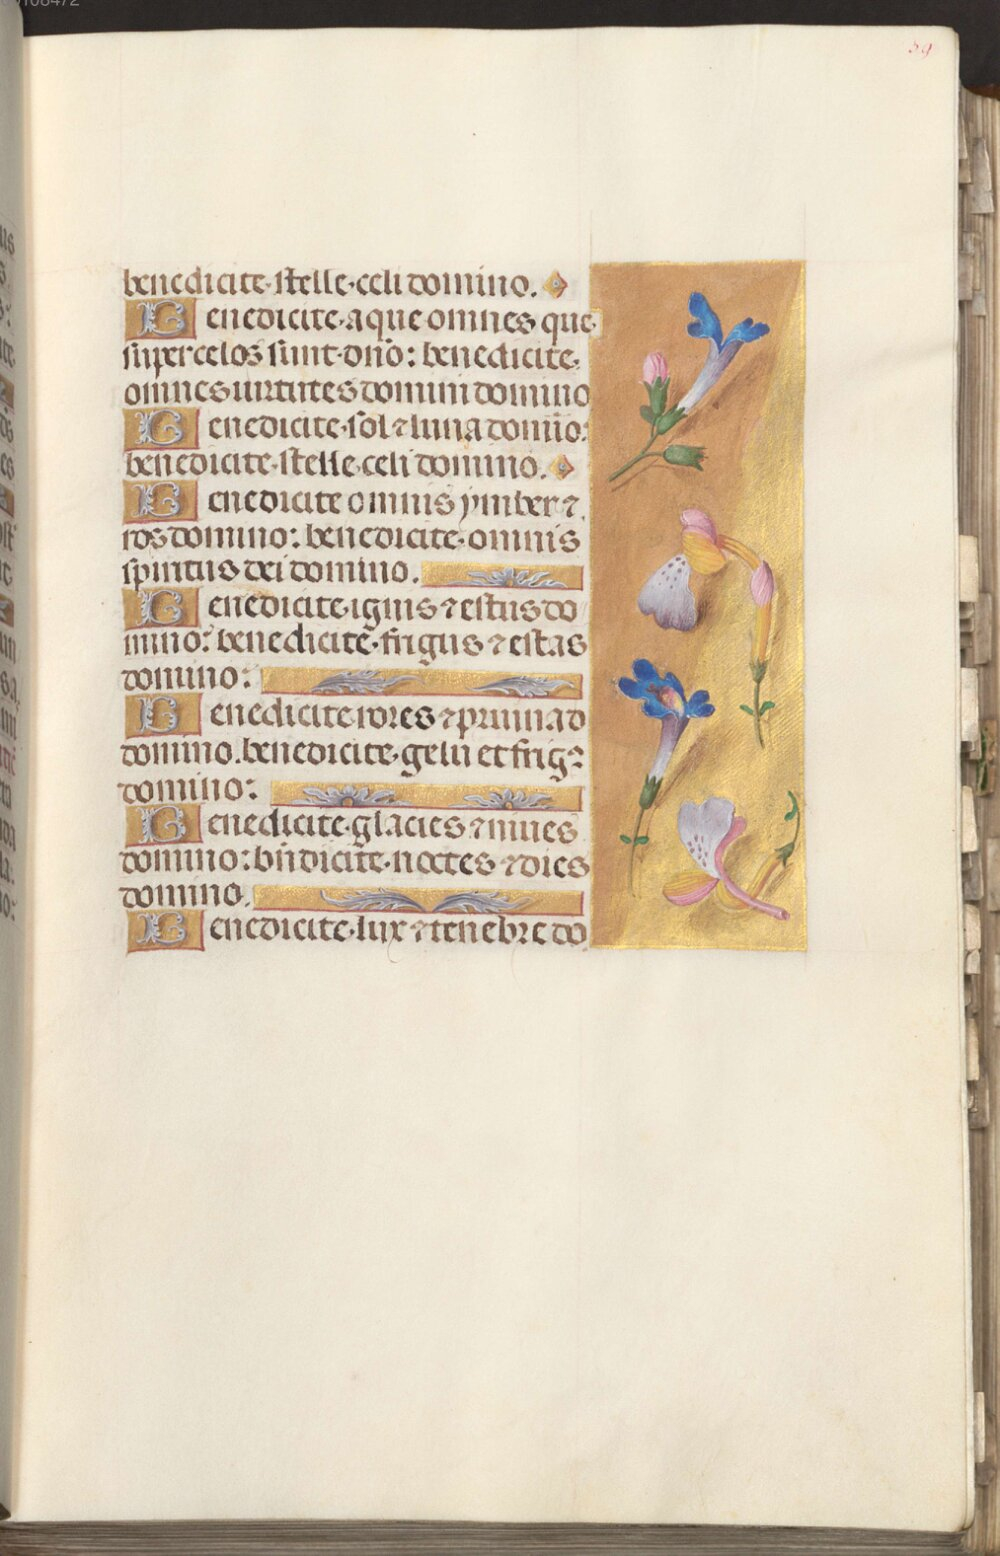 39
benedicite·stelle·celi domino.
Benedicite·aque omnes que·
super celos sunt·dño: benedicite·
omnes uirtutes domini domino
Benedicite·sol ⁊ luna domiño:
benedicite·stelle·celi domino.
Benedicite omnis ymber ⁊
ros domino: benedicite·omnis
spiritus dei domino.
Benedicite·ignis ⁊ estus do
mino: benedicite·frigus ⁊ estas
domino:
Benedicite rores ⁊ pruina do
domino. benedicite·gelu et frigꝰ
domino:
Benedicite·glacies ⁊ niues
domino: bñdicite·noctes ⁊ dies
domino.
Benedicite·lux ⁊ tenebre do